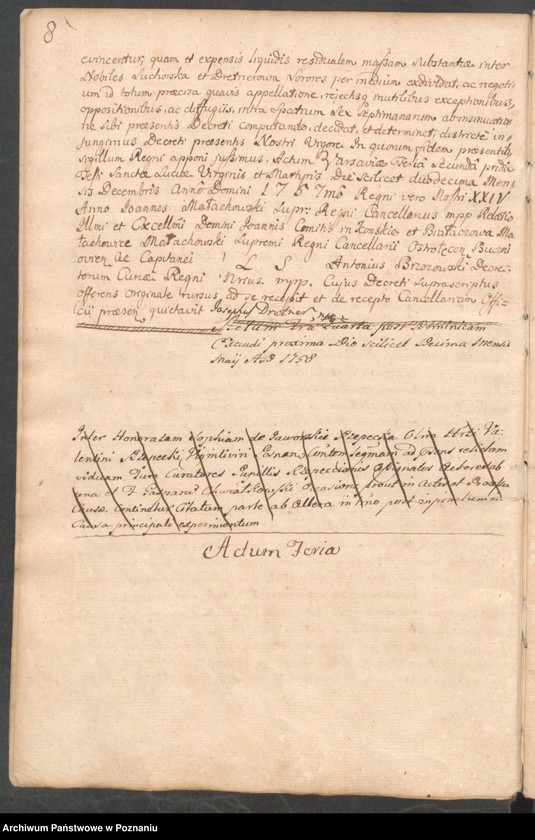 8
evincentur, quam et expensis liquidis residualem massam substantiæ inter
Nobiles Suchorska et Dretnerowa Sorores per medium exdividat, ac negoti
um id totum præcisa quavis appellatione, rejectisq inutilibus exceptionibus,
oppositionibus, ac diffugiis, intra spatium sex septimanarum ab insinuatio
ne sibi præsentis Decreti computando, decidat, et determinet, districte in
jungimus Decreti præsentis Nostri Vigore. In quorum fidem præsentib,
sigillum Regni apponi jussimus. Actum Varsaviæ Feria Secunda pridie
Festi Sanctæ Luciæ Virginis et Martyris Die scilicet duodecima Men
sis Decembris Anno Domini 1757mo Regni vero Nostri XXIV
Anno Joannes Małachowski Supr: Regni Cancellarius mpp Relatio
Illmi et Excellmi Domini Joannis Comitis in Konskie et Białaczowa Ma
łachowice Małachowski Supremi Regni Cancellarii Ostrołecen
Ac Capitanei L S Antonius Brzozowski Decre
torum Curiæ Regni mpp. Cujus Decreti suprascriptus
offerens originale rursus ad se recepit et de recepto Cancellariam Offi
cii præsen quietavit Josephus Dretner mp
Actum Fria Quarta post Dominicam
Exaudi proxima Die scilicet Decima Mensis
Maij AD 1758
Inter Honoratam Sophiam de Jaworskie Rzepecka Olim Va
lentini Rzepecki, Posnan, ad præns relictam
viduam Tum Curatores Pupillis Rzepeckianis Assignatos Actores ab
una et F Gasparum Chwałkowski Occasione prout in Actis et Processu
Causæ Continetur Citatum parte ab altera in tno post
Causa principali experimentum
Actum Feria
Archiwum Państwowe w Poznaniu